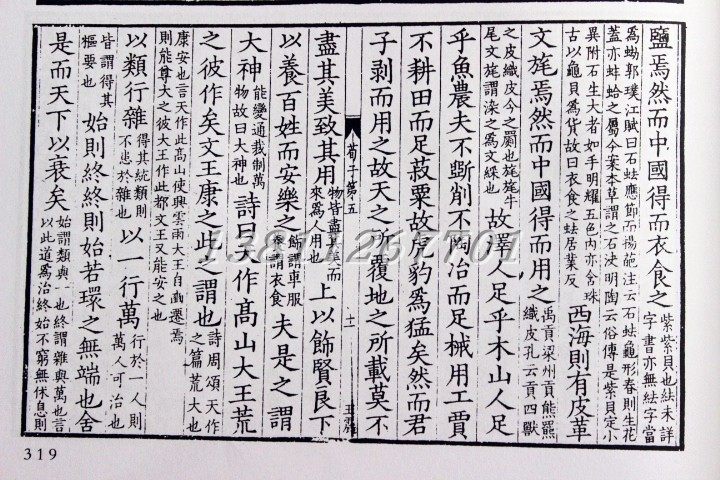 鹽焉然而中國得而衣食之
紫紫貝也紶未詳
字書亦無紶字當
爲蚴郭璞江賦曰石蚨應節而揚葩注云石蚨龜形春則生花
蓋亦蚌蛤之屬今案本草謂之石決明陶云俗傳是紫貝定小
異附石生大者如手明耀五色內亦含珠
古以龜貝爲貨故曰衣食之蚨居業反
西海則有皮革
文旄焉然而中國得而用之
禹貢梁州貢熊羆
織皮孔云貢四獸
之皮織皮今之罽也旄旄牛
尾文旄謂染之爲文綵也
故澤人足乎木山人足
乎魚農夫不斲削不陶冶而足械用工賈
不耕田而足菽粟故虎豹爲猛矣然而君
子剥而用之故天之所覆地之所載莫不
荀子第五
十一
盡其美致其用
物皆盡其美而
來爲人用也
上以飾賢良下
以養百姓而安樂之
飾謂車服
養謂衣食
夫是之謂
大神
能變通裁制萬
物故曰大神也
詩曰天作高山大王荒
之彼作矣文王康之此之謂也
詩周頌天作
之篇荒大也
康安也言天作此高山使興雲雨大王自豳遷焉
則能尊大之彼大王作此都文王又能安之也
以類行雜
得其統類則
不患於雜也
以一行萬
行於一人則
萬人可治也
皆謂得其
樞要也
始則終終則始若環之無端也舍
是而天下以衰矣
始謂類與一也終謂雜與萬也言
以此道爲治終始不窮無休息則
319
13811267701